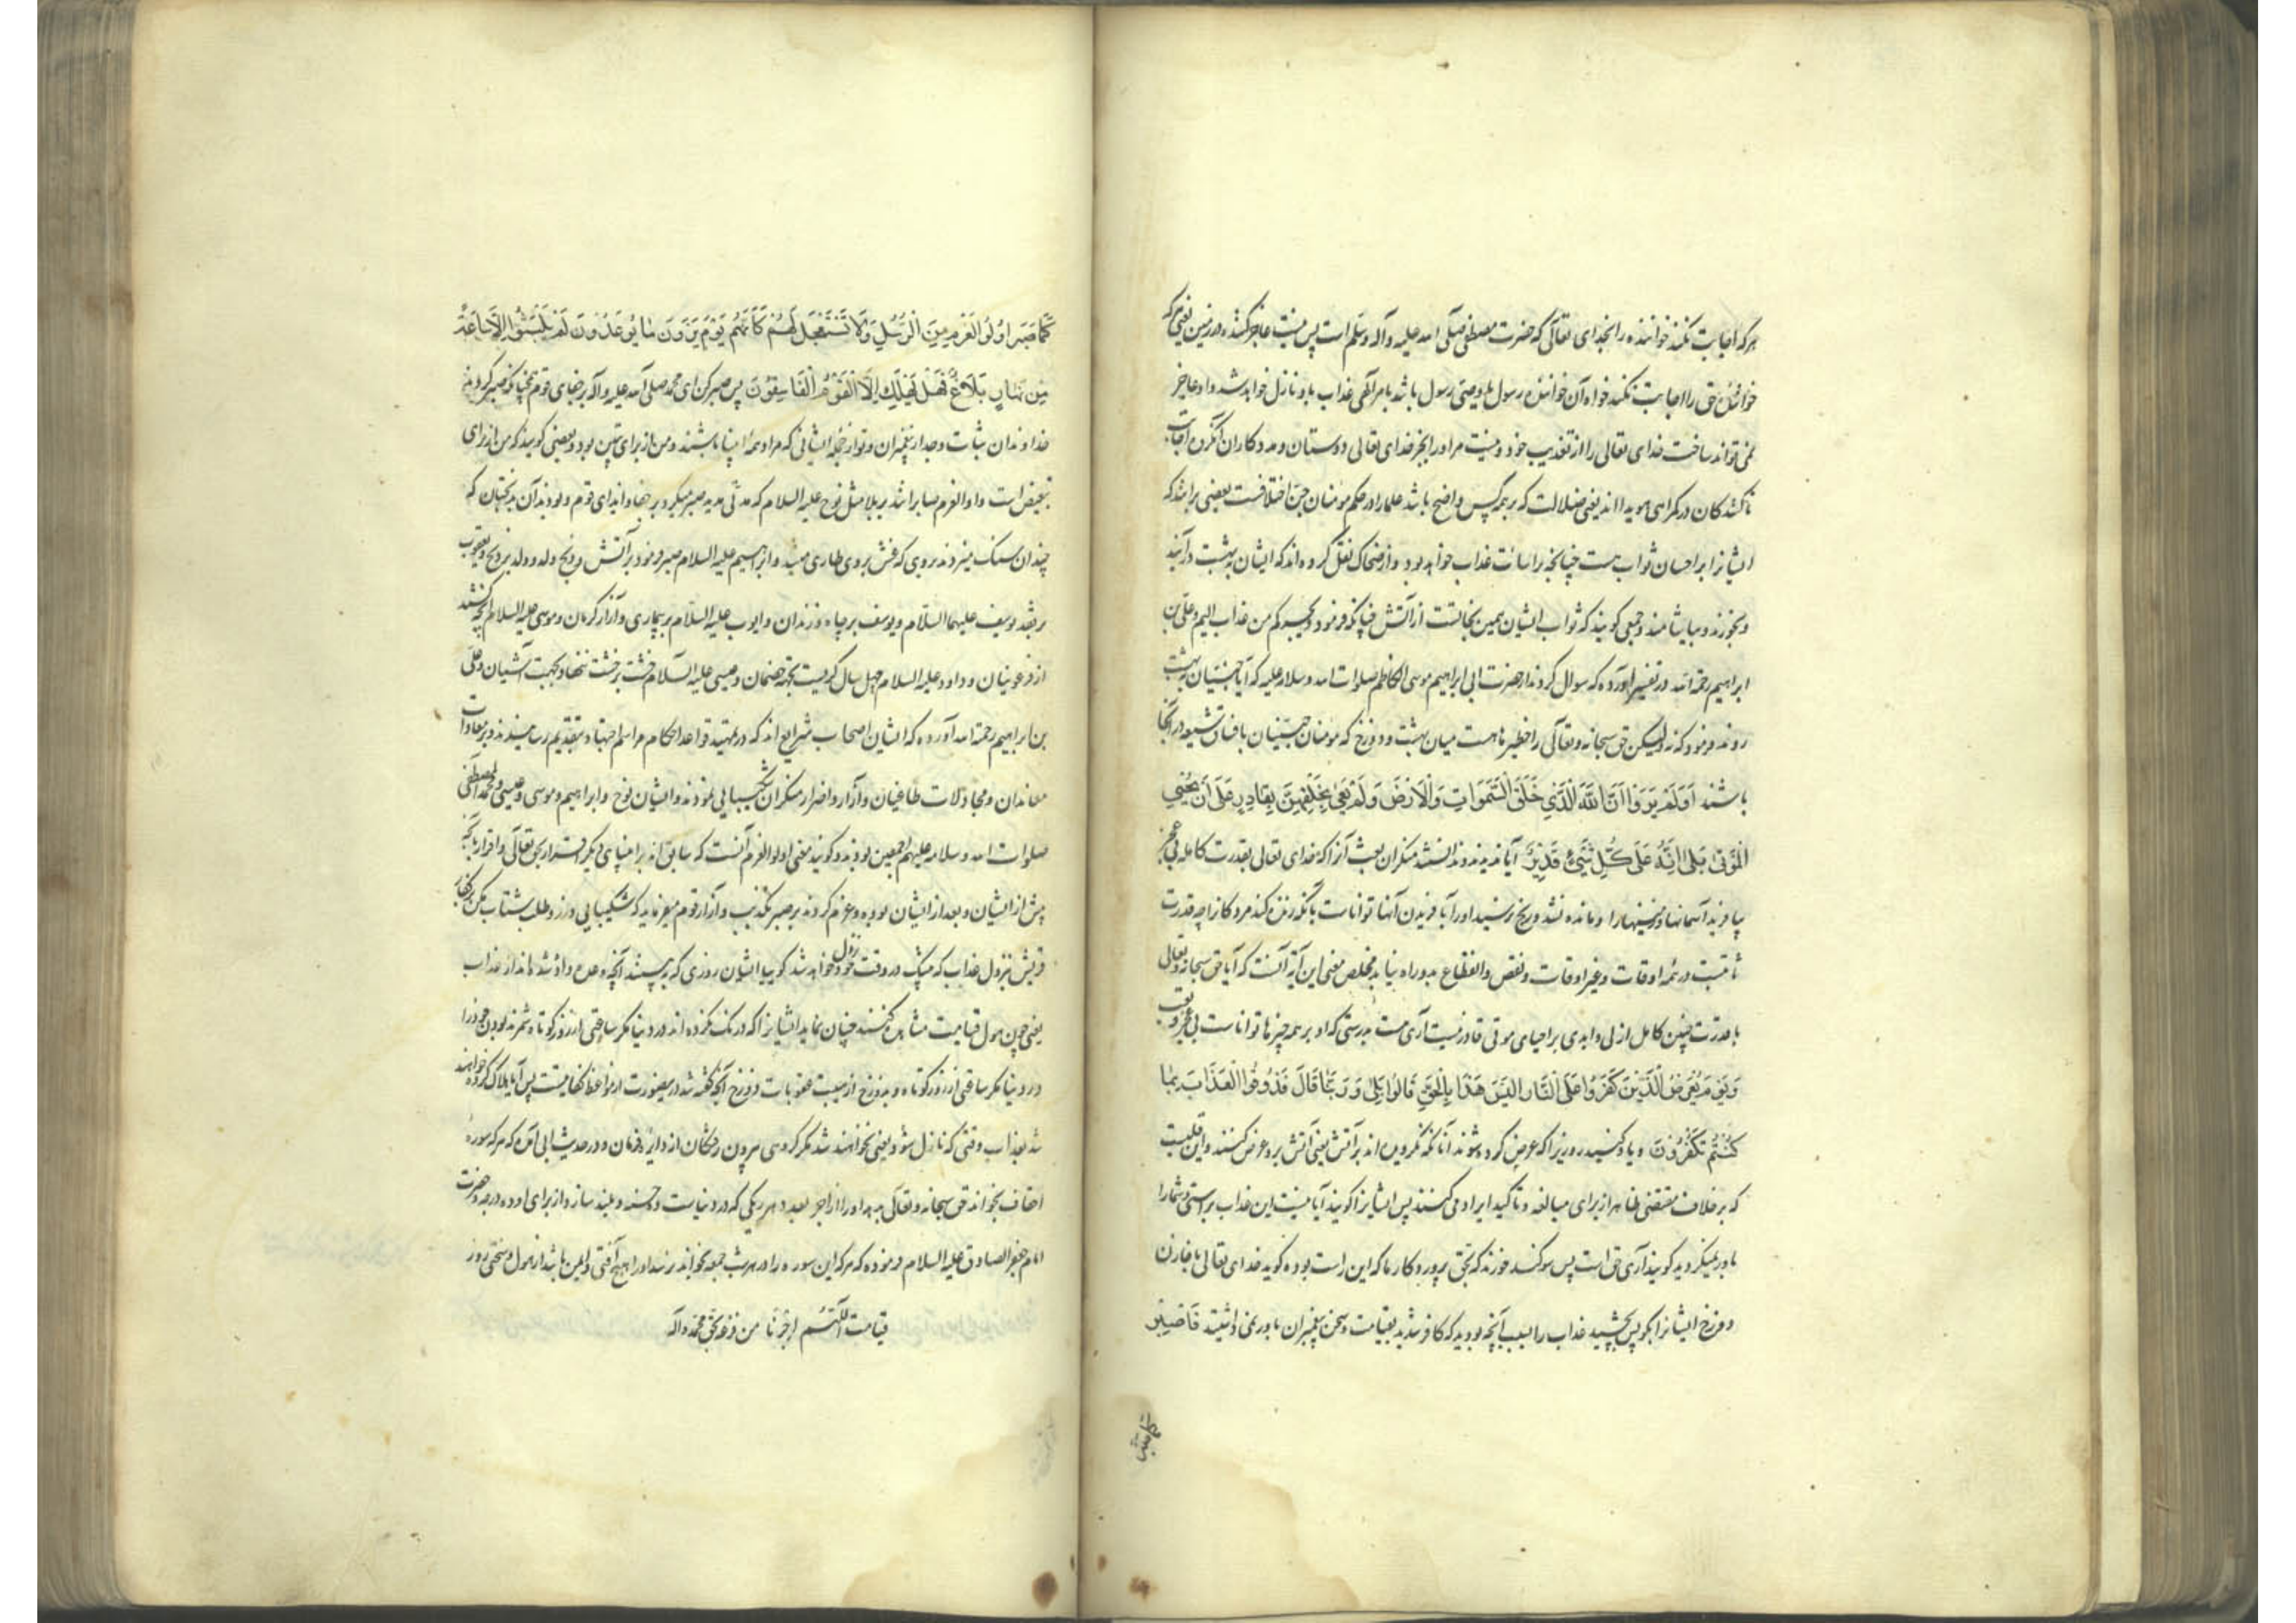 هرکه اجابت نکند خواننده را بخدای تعالی که حضرت مصطفی صلی الله علیه وآله وسلم است پس نیست عاجز کننده در زمین یعنی هرکه
خواننده حق را اجابت نکند خواه آن خواننده رسول یا وصی رسول باشد بامر الهی عذاب باو نازل خواهد شد و او عاجز
نمی تواند ساخت خدای تعالی را از تعذیب خود و نیست مر او را بجز خدای تعالی دوستان و مددکاران آنگروه اجابت
ناکنندگان در گمراهی هویدااند یعنی ضلالت که بر همه کس واضح باشد علما را در حکم مومنان جن اختلافست بعضی برانند که
ایشانرا بر احسان ثواب هست چنانچه بر اسائت عذاب خواهد بود و از ضحاک نقل کرده اند که ایشان به بهشت در آیند
و بخورند و بیاشامند و جمعی گویند که ثواب ایشان همین نجاتست از آتش چنانکه فرمود ویجرکم من عذاب الیم و علی بن
ابراهیم رحمه الله در تفسیر آورده که سوال کردند از حضرت ابی ابراهیم موسی الکاظم صلوات الله وسلامه علیه که آیا جنیان به بهشت
روند فرمود که نه ولیکن حق سبحانه وتعالی را حظیرها هست میان بهشت و دوزخ که مومنان جنیان با فساق شیعه در آنجا
باشند اَوَلَمْ یَرَوْا اَنَّ اللَّهَ الَّذِی خَلَقَ السَّمَوَاتِ وَالْاَرْضَ وَلَمْ یَعْیَ بِخَلْقِهِنَّ بِقَادِرٍ عَلَی اَنْ یُحْیِیَ
الْمَوْتَی بَلَی اِنَّهُ عَلَی کُلِّ شَیْءٍ قَدِیرٌ آیا ندیدند و ندانستند منکران بعث آنرا که خدای تعالی بقدرت کامله بی عجز
بیافرید آسمانها و زمینها را و مانده نشد و رنج نرسید او را بآفریدن آنها توانا است بآنکه زنده کند مردگانرا چه قدرت
ثابتست در همه اوقات و غیر اوقات و نقص و انقطاع بدو راه نیابد مخلص معنی این آیه آنست که آیا حق سبحانه وتعالی
با قدرت چنین کامل ازلی و ابدی بر احیای موتی قادر نیست آری هست بدرستی که او بر همه چیزها توانا است بی عجز و تعب
وَیَوْمَ یُعْرَضُ الَّذِینَ کَفَرُوا عَلَی النَّارِ اَلَیْسَ هَذَا بِالْحَقِّ قَالُوا بَلَی وَرَبِّنَا قَالَ فَذُوقُوا الْعَذَابَ بِمَا
کُنْتُمْ تَکْفُرُونَ و یاد کنید روزیرا که عرض کرده شوند آنانکه نگرویده اند بر آتش یعنی آتش برو عرض کنند و این قلبیست
که بر خلاف مقتضی ظاهر از برای مبالغه و تاکید ایراد می کنند پس ایشانرا گویند آیا نیست این عذاب براستی و شما را
باور نمیکردید گویند آری حق است پس سوگند خورند که بحق پروردگار ما که این راست بوده گوید خدای تعالی یا خازن
دوزخ ایشانرا بگو پس بچشید عذاب را بسبب آنچه بودید که کافر شدید بقیامت و سخن پیغمبران باور نمی داشتید فَاصْبِرْ
کَمَا صَبَرَ اُولُوا الْعَزْمِ مِنَ الرُّسُلِ وَلَا تَسْتَعْجِلْ لَهُمْ کَاَنَّهُمْ یَوْمَ یَرَوْنَ مَا یُوعَدُونَ لَمْ یَلْبَثُوا اِلَّا سَاعَةً
مِنْ نَهَارٍ بَلَاغٌ فَهَلْ یُهْلَکُ اِلَّا الْقَوْمُ الْفَاسِقُونَ پس صبر کن ای محمد صلی الله علیه وآله بر جفای قوم همچنانکه صبر کردند
خداوندان ثبات و جد از پیغمبران و تو از جمله ایشانی که مراد همه انبیا باشند و من از برای تبیین بود و بعضی گویند که من از برای
تبعیض است و اولوالعزم صابرانند بر بلا مثل نوح علیه السلام که مدتی مدید صبر میکرد بر جفا و ایذای قوم و بودند آن بدبختان که
چندان سنگ میزدند بروی که غش بروی طاری میشد و ابراهیم علیه السلام صبر فرمود بر آتش و ذبح ولد و ولد بر ذبح و یعقوب
بر فقد یوسف علیهما السلام و یوسف بر چاه و زندان و ایوب علیه السلام بر بیماری و آزار کرمان و موسی علیه السلام بر آنچه کشید
از فرعونیان و داود علیه السلام چهل سال گریست بجهة و عیسی علیه السلام خشت بر خشت ننهاد بجهت آشیان و علی
بن ابراهیم رحمه الله آورده که ایشان اصحاب شرایع اند که در تمهید قواعد احکام مراسم اجتهاد بتقدیم رسانیدند و بر معادات
معاندان و مجادلات طاغیان و آزار و اضرار منکران شکیبایی نمودند و ایشان نوح و ابراهیم و موسی و عیسی و محمد المصطفی
صلوات الله وسلامه علیهم اجمعین بودند و گویند معنی اولوالعزم آنست که سابق اند بر انبیای دیگر در اقرار بحق تعالی و اقرار بآنکه
پیش از ایشان و بعد از ایشان بوده و عزم کردند بر صبر تکذیب و آزار قوم میفرماید که شکیبایی ورز و طلب شتاب مکن بر کفار
قریش بنزول عذاب که بیشک در وقت خود نزول خواهد شد گوییا ایشان روزی که ببینند آنچه وعده داده شده اند از عذاب
یعنی چون هول قیامت مشاهده کنند چنان نماید ایشانرا که درنگ نکرده اند در دنیا مگر ساعتی از روز کوتاه شمرند بودن خود را
در دنیا مگر ساعتی از روز کوتاه و بدوزخ از هیبت عقوبات دوزخ آنچه گفته شد از مواعظ کفایتست پس آیا هلاک کرده خواهند
شد بعذاب وقتی که نازل شود یعنی نخواهند شد مگر گروهی بیرون رفتگان از دایره فرمان و در حدیث ابی آمده که هرکه سوره
احقاف بخواند حق سبحانه وتعالی بدهد او را از اجر بعدد هر ریگی که در دنیاست ده حسنه و بلند سازد از برای او ده درجه و حضرت
امام جعفر الصادق علیه السلام فرموده که هرکه این سوره را در هر شب جمعه بخواند نرسد او را هیچ آفتی و ایمن باشد از هول و سختی روز
قیامت اللّهُمَّ اجرنا من فزعه بحق محمد وآله